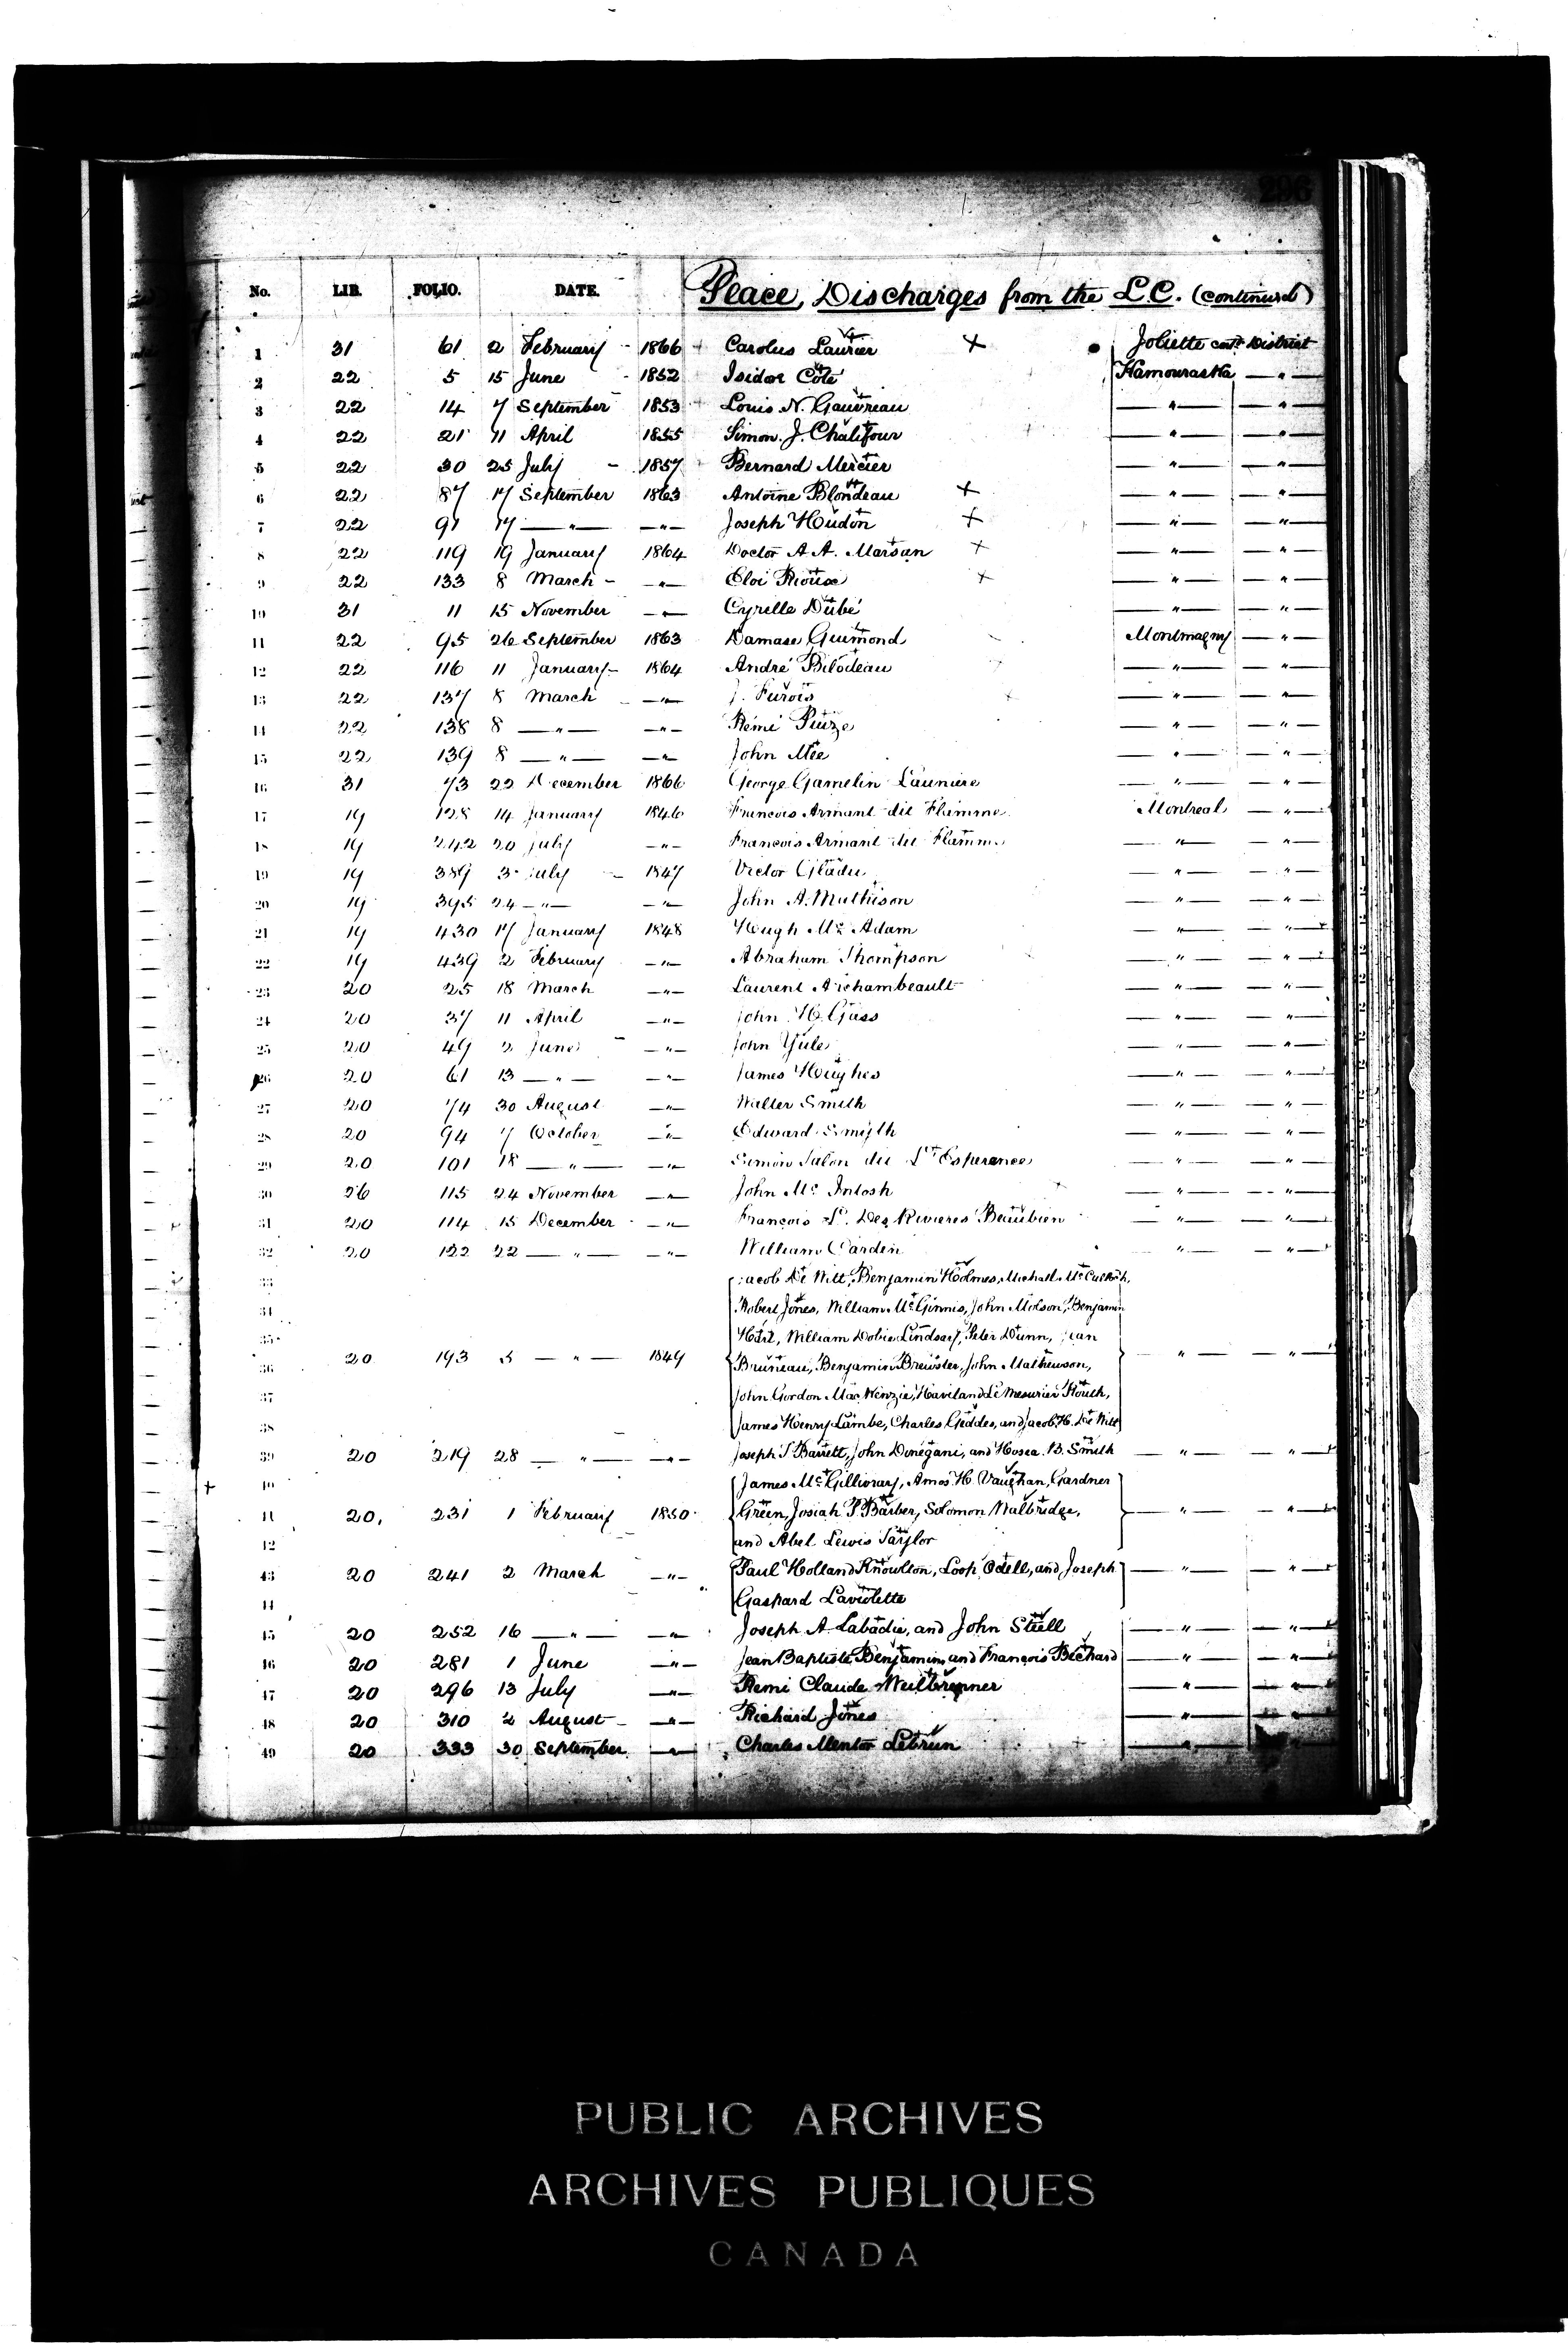 296
No. LIB. FOLIO. DATE. Peace, Discharges from the L.C. (continued)
1 31 61 2 February - 1866 Carolus Laurier Joliette District
2 22 5 15 June - 1852 Isidore Côté Kamouraska — " —
3 22 14 7 September 1853 Louis N. Gauvreau — " — — " —
4 22 21 11 April 1855 Simon. J. Chalifour — " — — " —
5 22 30 25 July - 1857 Bernard Mercier — " — — " —
6 22 87 17 September 1863 Antoine Blondeau — " — — " —
7 22 91 17 — " — — " — Joseph Houdon — " — — " —
8 22 119 19 January 1864 Doctor A. A. Marsan — " — — " —
9 22 133 8 March - — " — Eloi Rioux — " — — " —
10 31 11 15 November — " — Cyrille Dubé — " — — " —
11 22 95 26 September 1863 Damase Guimond Montmagny — " —
12 22 116 11 January - 1864 André Bilodeau — " — — " —
13 22 137 8 March — " — J. Furois — " — — " —
14 22 138 8 — " — — " — Rémi Puize — " — — " —
15 22 139 8 — " — — " — John Mee — " — — " —
16 31 73 22 December 1866 George Gamelin Launiere — " — — " —
17 19 128 14 January 1846 Francois Armant dit Flamme Montreal — " —
18 19 242 20 July — " — François Armant dit Flamme — " — — " —
19 19 389 3 July - 1847 Victor Gladu — " — — " —
20 19 395 24 — " — — " — John A. Mathison — " — — " —
21 19 430 17 January 1848 Hugh Mc Adam — " — — " —
22 19 439 2 February — " — Abraham Thompson — " — — " —
23 20 25 18 March — " — Laurent Archambeault — " — — " —
24 20 37 11 April — " — John H. Gass — " — — " —
25 20 49 2 June — " — John Yule — " — — " —
26 20 61 13 — " — — " — James Hughes — " — — " —
27 20 74 30 August — " — Walter Smith — " — — " —
28 20 94 7 October — " — Edward Smyth — " — — " —
29 20 101 18 — " — — " — Simon Talon dit L'Esperance — " — — " —
30 26 115 24 November — " — John Mc Intosh — " — — " —
31 20 114 15 December — " — François Des Rivieres Beaubien — " — — " —
32 20 122 22 — " — — " — William Carden — " — — " —
33 Jacob De Witt, Benjamin Holmes, Michael Mc Culloch,
34 Robert Jones, William Mc Ginnis, John Molson, Benjamin
35 Hart, William Dobie Lindsay, Peter Dunn, Jean
36 20 193 5 — " — 1849 Bruneau, Benjamin Brewster, John Mathewson, — " — — " —
37 John Gordon Mac Kenzie, Haviland Le Mesurier Routh,
38 James Henry Lambe, Charles Geddes, and Jacob H. De Witt
39 20 219 28 — " — — " — Joseph T Barrett, John Donegani, and Hosea. B. Smith — " — — " —
40 James Mc Gillivray, Amos H. Vaughan, Gardner
41 20 231 1 February 1850 Green, Josiah T. Barber, Solomon Walbridge, — " — — " —
42 and Abel Lewis Taylor
43 20 241 2 March — " — Paul Holland Knowlton, Loop Odell, and Joseph — " — — " —
44 Gaspard Laviolette
45 20 252 16 — " — — " — Joseph A. Labadie, and John Steell — " — — " —
46 20 281 1 June — " — Jean Baptiste Benjamin, and François Bechard — " — — " —
47 20 296 13 July — " — Remi Claude Meilbrenner — " — — " —
48 20 310 2 August - — " — Richard Jones — " — — " —
49 20 333 30 September — " — Charles Mentor Lebrun — " — — " —
PUBLIC ARCHIVES
ARCHIVES PUBLIQUES
CANADA